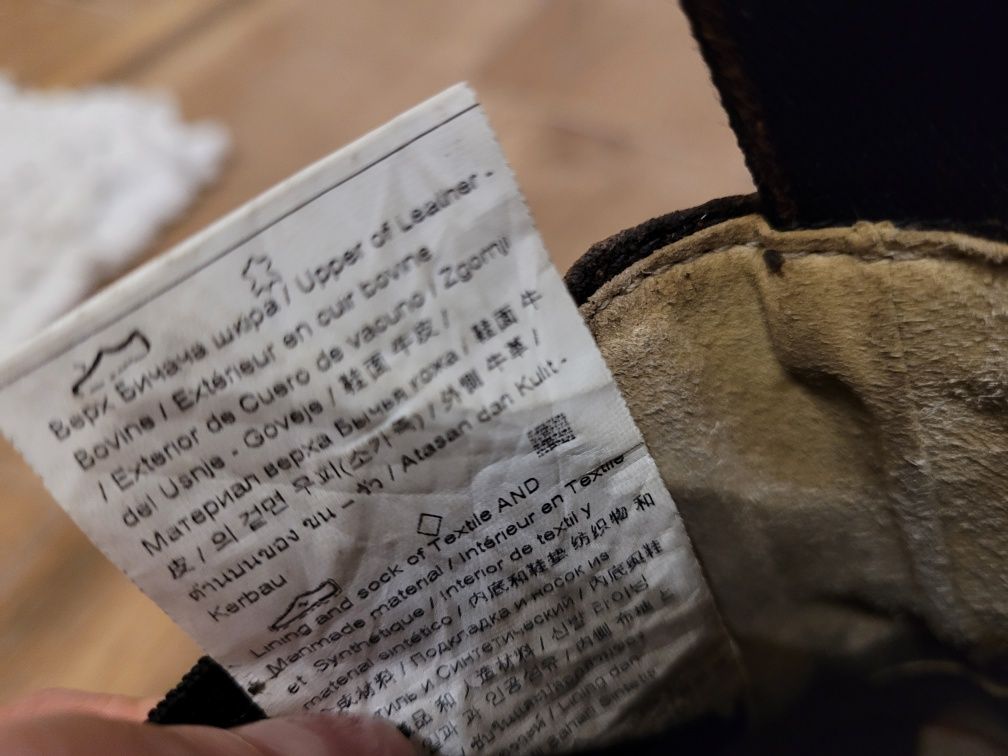 Верх Бичача шкіра / Upper of Leather -
Bovine / Extérieur en cuir bovine
/ Exterior de Cuero de vacuno / Zgornji
del Usnje - Goveje / 鞋面 牛皮 /
Материал верха Бычья кожа / 鞋面 牛
皮 / 의 겉면 우피(소가죽) / 外側 牛革 /
ด้านบนของ ขน - / Atasan dari Kulit -
Kerbau
Lining and sock of Textile AND
Manmade material / Intérieur en Textile
et Synthétique / Interior de textil y
material sintético / 内底和鞋垫 纺织物 和
合成材料 / Подкладка и носок из
и Синтетический / 内底和鞋
品 和 人造材料 / 신발 라이닝
과 인공섬유 / 内側
/ Lining dari